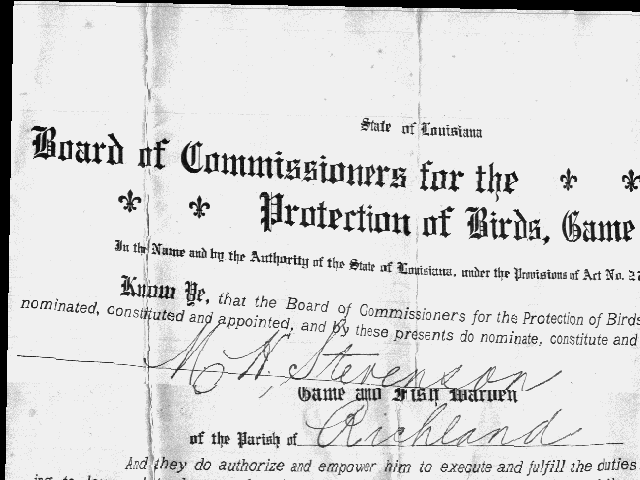 State of Louisiana
Board of Commissioners for the
Protection of Birds, Game
In the Name and by the Authority of the State of Louisiana, under the Provisions of Act No. 27
Know Ye, that the Board of Commissioners for the Protection of Birds
nominated, constituted and appointed, and by these presents do nominate, constitute and
M H Stevenson
Game and Fish Warden
of the Parish of Richland
And they do authorize and empower him to execute and fulfill the duties
ing to